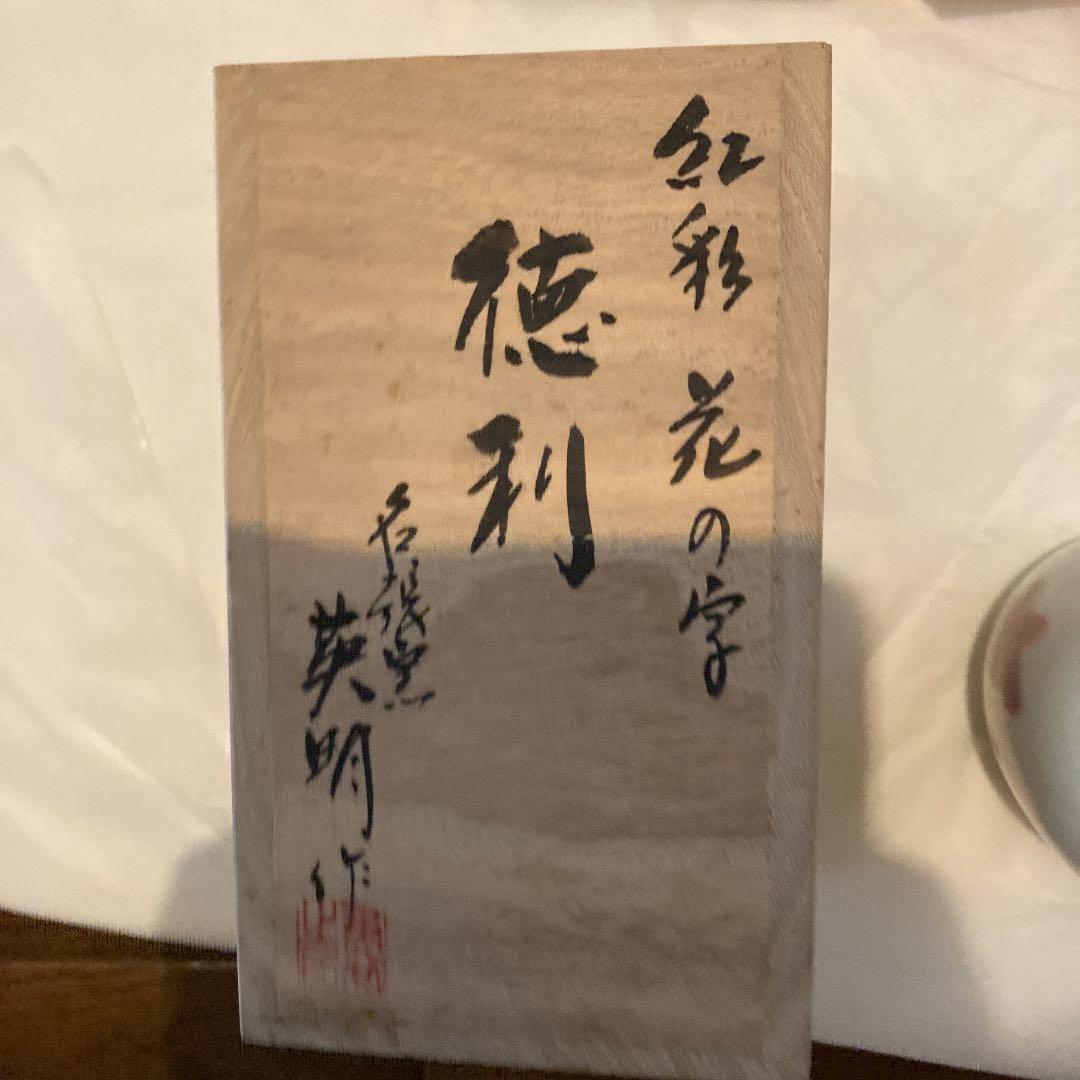 紅彩 花の字
徳利
名張窯
英明作